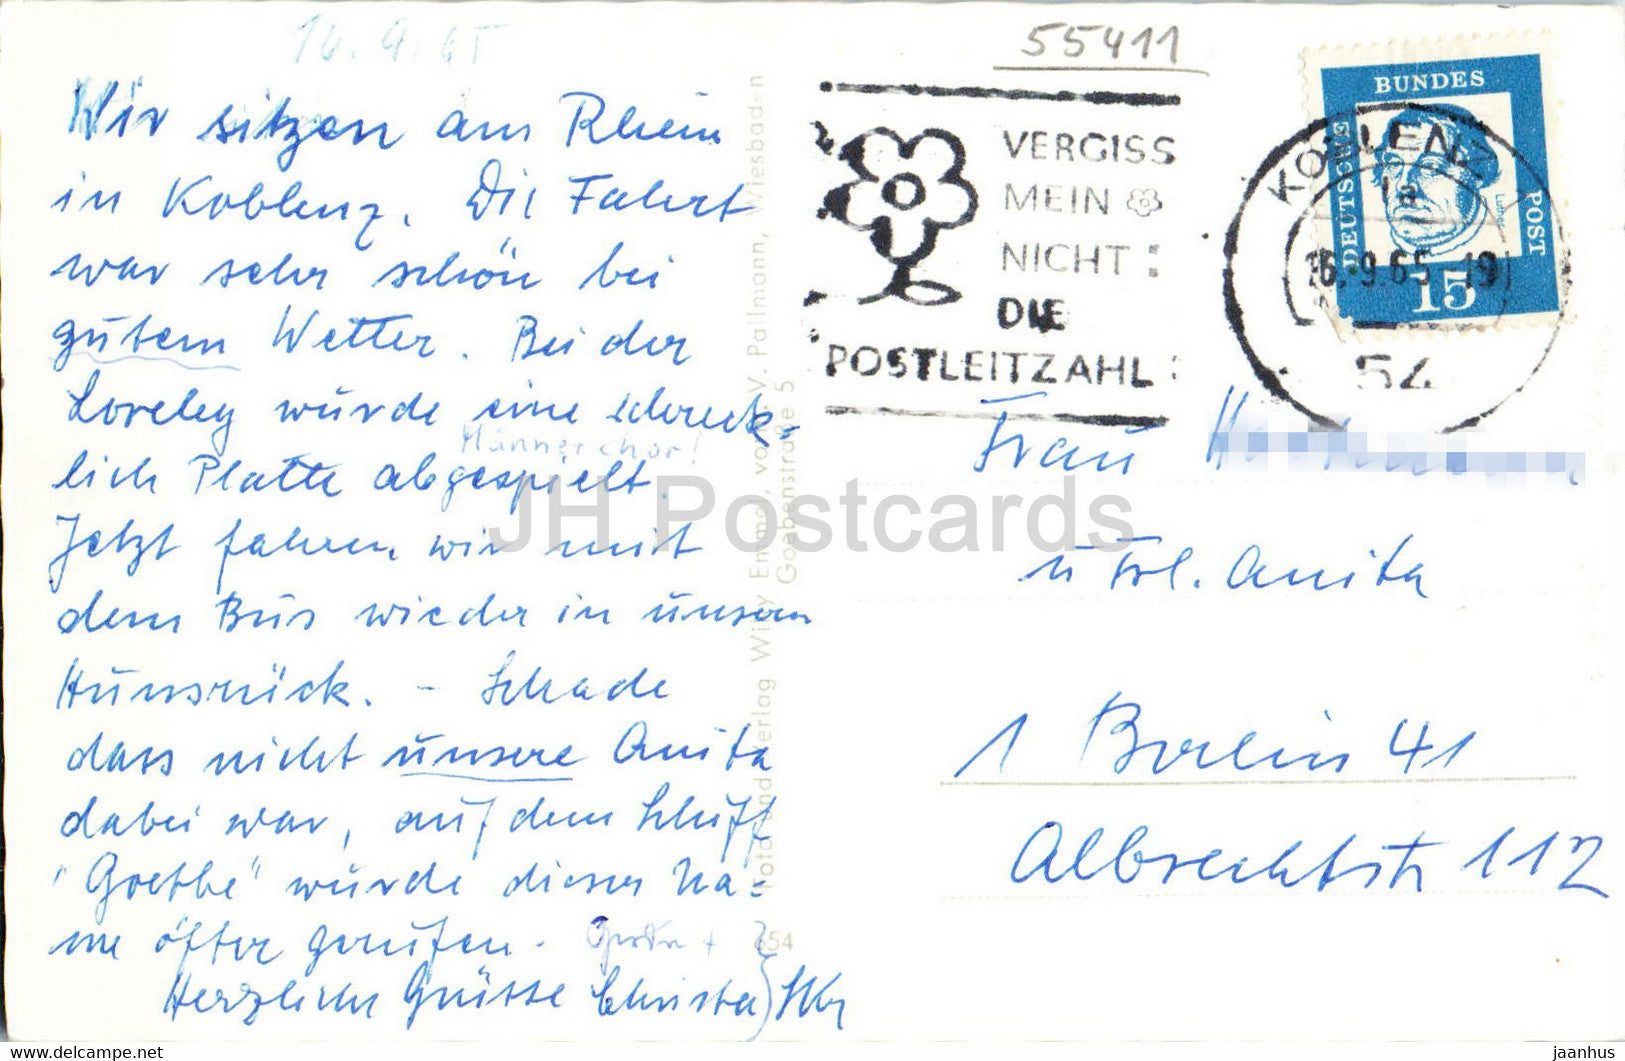 16.9.65
Wir sitzen am Rhein
in Koblenz. Die Fahrt
war sehr schön bei
gutem Wetter. Bei der
Loreley wurde eine schreck-
Männerchor!
lich Platte abgespielt.
Jetzt fahren wir mit
dem Bus wieder in unsern
Hunsrück. – Schade
dass nicht unsere Anita
dabei war, auf dem Schiff
"Goethe" wurde dieser Na-
me öfter gerufen.
Herzliche Grüsse Christa
Foto und Verlag Willy Emmel, vorm. V. Pallmann, Wiesbaden
Goebenstraße 5
654
55411
VERGISS
MEIN
NICHT:
DIE
POSTLEITZAHL:
KOBLENZ 1
1a
16.9.65-19
54
DEUTSCHE BUNDES POST
Luther
15
Frau
u Frl. Anita
1 Berlin 41
Albrechtstr 112
JH Postcards
www.delcampe.net
jaanhus